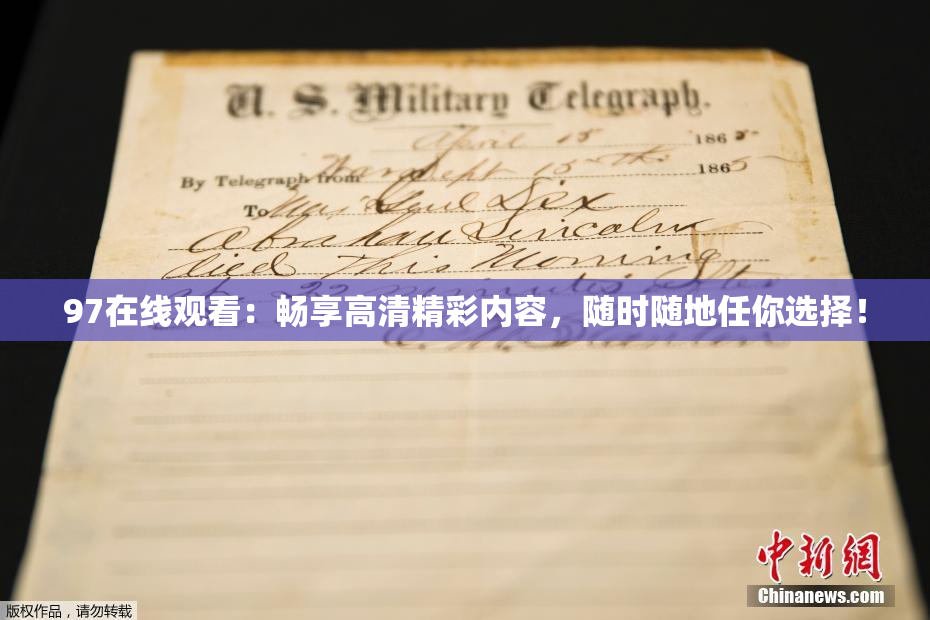 U. S. Military Telegraph.
April 15 1865
By Telegraph from War Dept 15th 1865
To Maj Genl Dix
Abraham Lincoln
died This Morning
at 22 minutes after
97在线观看：畅享高清精彩内容，随时随地任你选择！
E. M. Stanton
中新网
Chinanews.com
版权作品，请勿转载